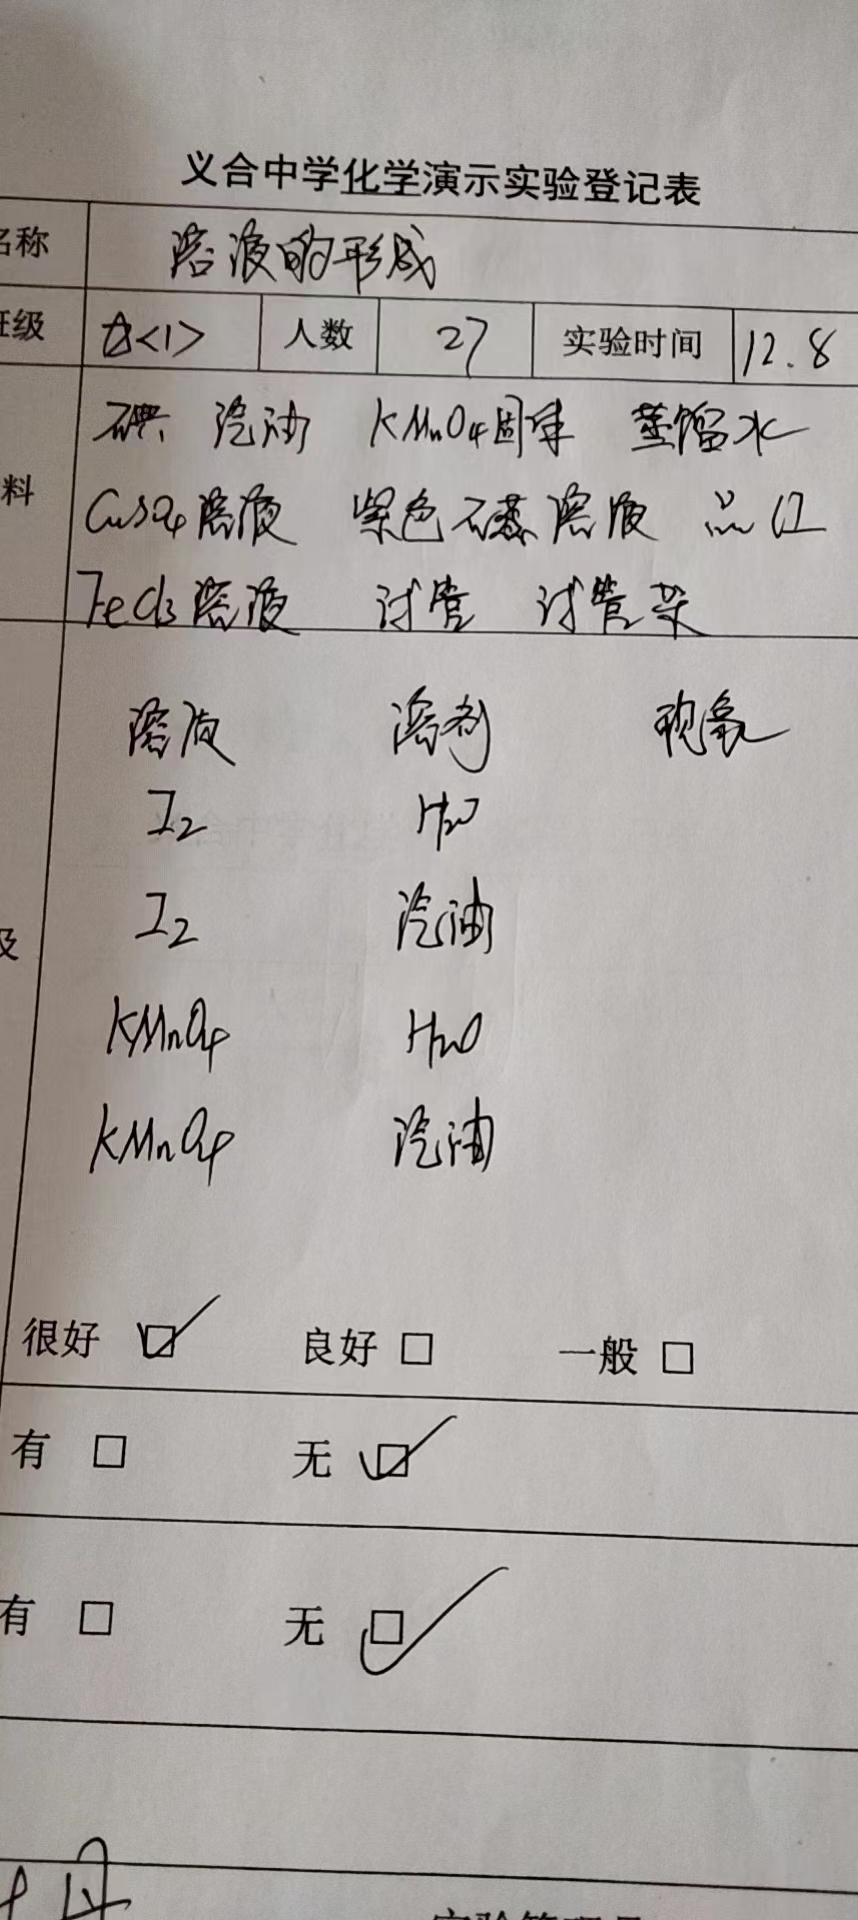 义合中学化学演示实验登记表
名称 溶液的形成
班级 九<1> 人数 27 实验时间 12.8
碘 汽油 KMnO4固体 蒸馏水
料 CuSO4溶液 紫色石蕊溶液
FeCl3溶液 试管 试管架
溶液 溶剂 现象
I2 H2O
I2 汽油
及
KMnO4 H2O
KMnO4 汽油
很好 ☑ 良好 □ 一般 □
有 □ 无 ☑
有 □ 无 ☑